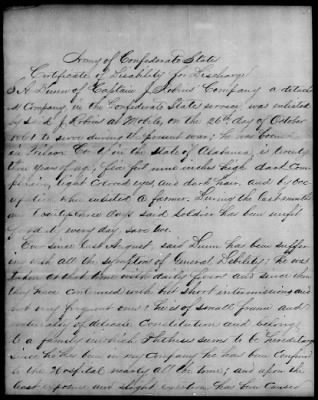 Army of Confederate States
Certificate of Disability for Discharge
A. Dunn of Captain J. Robins Company a detach
Company, in the Confederate States service, was enlisted
by J. Robins at Mobile, on the 26th day of October
1861 to serve during the present war; he was born
in Wilcox Co in the State of Alabama, is twenty
two years of age, five feet nine inches high dark Com
plexion, light colored eyes, and dark hair, and by occ
upation when enlisted a farmer. During the last month
and twenty-three days said soldier has been unfit
for duty every day save two.
Ever since last August, said Dunn has been suffer
ing with all the symptoms of General Debility; he was
taken at that time with daily fevers and since then
they have continued with but short intermissions and
but very frequent ones: he is of small frame and
naturally of delicate Constitution and belongs
to a family in which Phthisis seems to be hereditary.
Since he has been in my Company he has been confined
to the Hospital nearly all the time; and upon the
least exposure and slight exertion has been caused